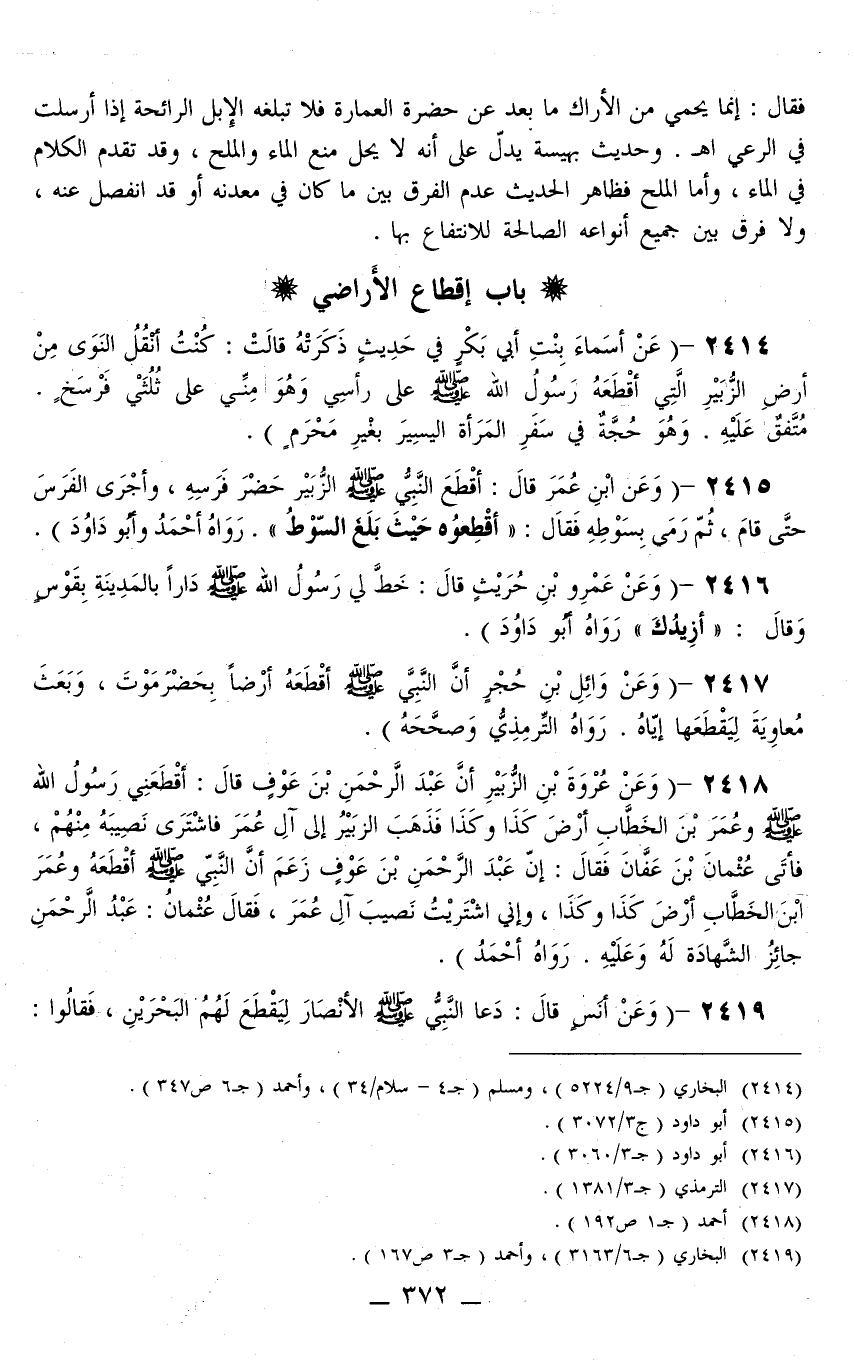 فقال : إنما يحمي من الأراك ما بعد عن حضرة العمارة فلا تبلغه الإبل الرائحة إذا أرسلت
في الرعي اهـ . وحديث بهيسة يدلّ على أنه لا يحل منع الماء والملح ، وقد تقدم الكلام
في الماء ، وأما الملح فظاهر الحديث عدم الفرق بين ما كان في معدنه أو قد انفصل عنه ،
ولا فرق بين جميع أنواعه الصالحة للانتفاع بها .
باب إقطاع الأَراضي
٢٤١٤ -( عَنْ أسمَاءَ بِنْتِ أبي بَكْرٍ في حَدِيثٍ ذَكَرَتْهُ قالَتْ : كُنْتُ أنْقُلُ النَوَى مِنْ
أرضِ الزُّبَيْرِ الَّتِي أقْطَعَهُ رَسُولُ الله ﷺ على رأسِي وَهُوَ مِنِّي على ثُلُثَيْ فَرْسَخٍ .
مُتَّفقٌ عَلَيْهِ . وَهُوَ حُجَّةٌ في سَفَرِ المَرَأة اليسِيَرَ بغْيرِ مَحْرَمٍ ) .
٢٤١٥ -( وَعَن ابْنِ عُمَرَ قالَ : أقْطَعَ النَّبِيُّ ﷺ الزُّبَيْر حَضْرَ فَرَسِهِ ، وأجْرَى الفَرَسَ
حتَّى قامَ ، ثُمّ رَمَي بِسَوْطِهِ فَقاَل : « أقْطِعوُه حَيْثَ بَلَغَ السّوْطُ » . رَوَاهُ أحْمَدُ وأبُو دَاوُدَ ) .
٢٤١٦ -( وَعَنْ عَمْرِو بْنِ حُرَيْثٍ قالَ : خَطَّ لي رَسُولُ الله ﷺ دَاراً بالمَدِينَةِ بِقَوْسٍ
وَقالَ : « أزِيدُكَ » رَوَاهُ أبُو دَاوُدَ ) .
٢٤١٧ -( وَعَنْ وَائِلِ بْنِ حُجْرٍ أنَّ النَّبِيَّ ﷺ أقْطَعَهُ أرْضاً بِحَضْرَمَوْتَ ، وَبَعَثَ
مُعاوِيَةَ لِيَقْطَعَها إيّاهُ . رَوَاهُ التِّرمِذِيُّ وَصحَّحَهُ ) .
٢٤١٨ -( وَعَنْ عُرْوَةَ بْنِ الزُّبَيْرِ أنَّ عَبْدَ الَّرحْمَنِ بْنَ عَوْفٍ قالَ : أقْطَعَنِي رَسُولُ الله
ﷺ وعُمَرَ بْنَ الخَطَّابِ أرْضَ كَذَا وكَذَا فَذَهَبَ الزبَيْرُ إلى آلِ عُمَرَ فاشْتَرَى نَصِيبَهُ مِنْهُمْ ،
فأتَى عُثْمانَ بْنَ عَفَّانَ فَقالَ : إنّ عَبْدَ الرَّحْمَنِ بْنَ عَوْفٍ زَعَمَ أنَّ النَّبِيّ ﷺ أقْطَعَهُ وعُمَرَ
ابْنَ الخَطَّابِ أرْضَ كَذَا وكَذَا ، وإني اشْتَريْتُ نَصيبَ آلِ عُمَرَ ، فَقالَ عُثْمانُ : عَبْدُ الَّرحْمَنِ
جائِزُ الشَّهادَة لَهُ وَعَلَيْهِ . رَوَاهُ أحْمَدُ ) .
٢٤١٩ -( وَعَنْ أنَسٍ قالَ : دَعا النَّبِيُّ ﷺ الأنْصَارَ لِيَقْطَعَ لَهُمُ البَحْرَيْنِ ، فَقالُوا :
(٢٤١٤) البخاري ( جـ٥٢٢٤/٩ ) ، ومسلم ( جـ٤ - سلام/٣٤ ) ، وأحمد ( جـ٦ ص٣٤٧ ) .
(٢٤١٥) أبو داود ( ج٣٠٧٢/٣ ) .
(٢٤١٦) أبو داود ( جـ٣٠٦٠/٣ ) .
(٢٤١٧) الترمذي ( جـ١٣٨١/٣ ) .
(٢٤١٨) أحمد ( جـ١ ص١٩٢ ) .
(٢٤١٩) البخاري ( جـ٣١٦٣/٦ ) ، وأحمد ( جـ٣ ص١٦٧ ) .
ـ ٣٧٢ ـ